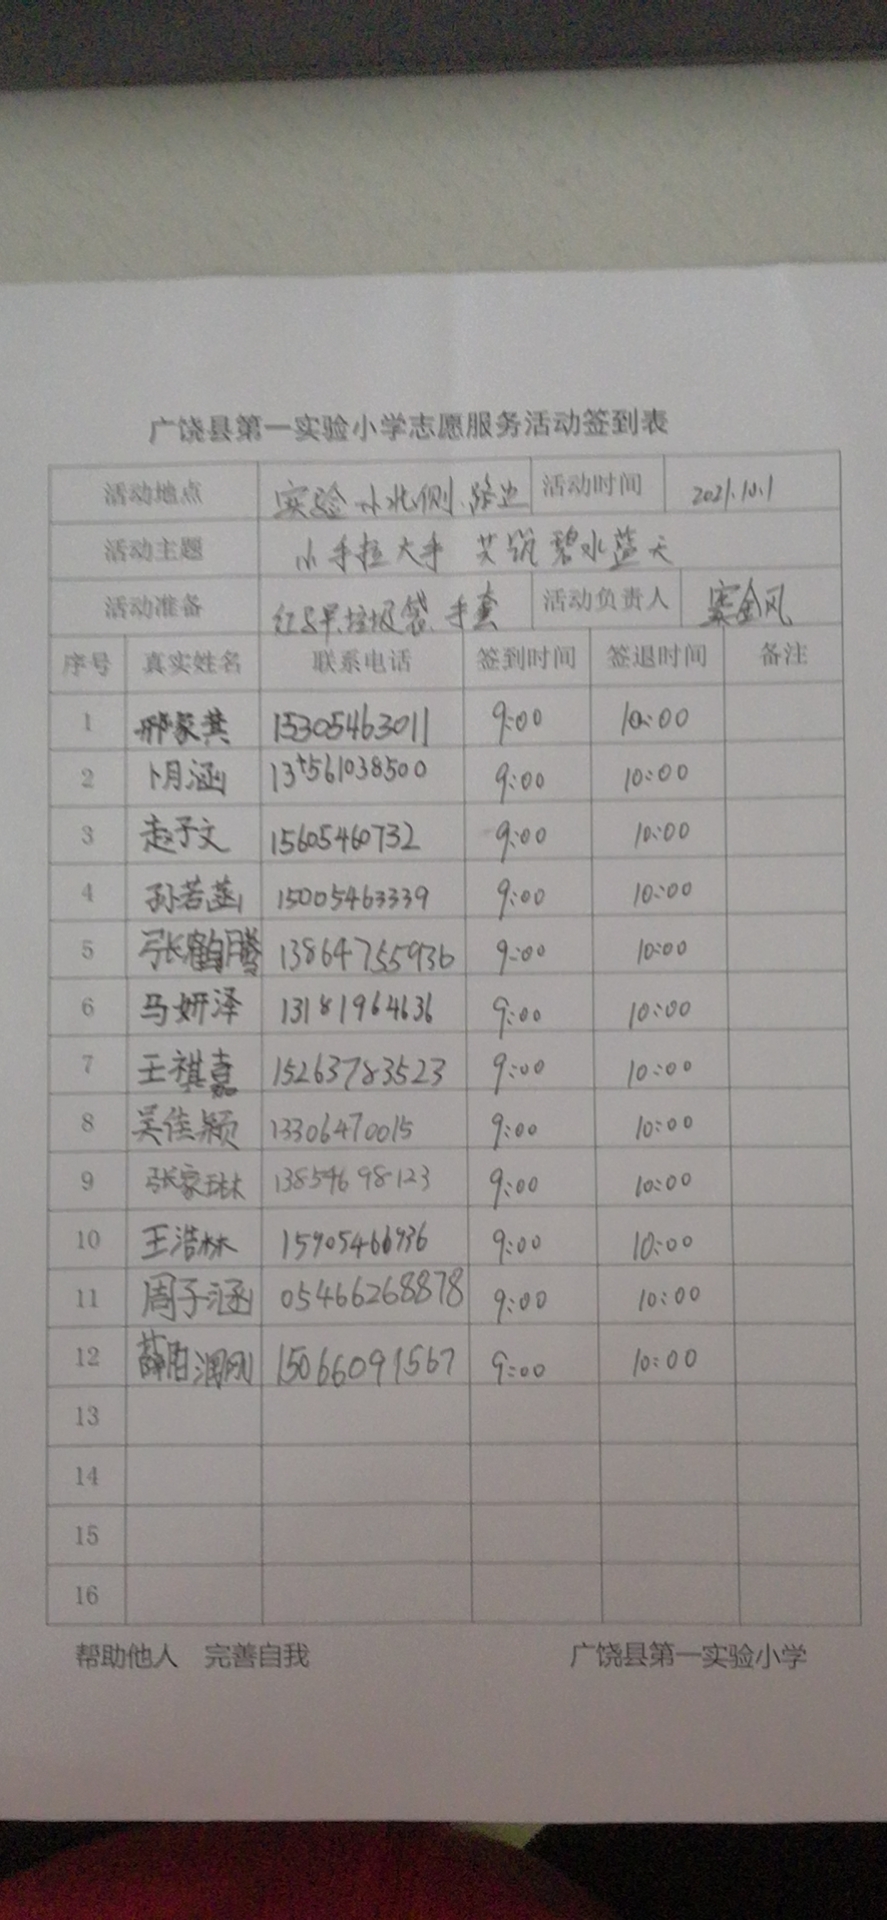 广饶县第一实验小学志愿服务活动签到表
活动地点 实验小北侧路边 活动时间 2021.10.1
活动主题 小手拉大手 共筑碧水蓝天
活动准备 垃圾袋、手套 活动负责人 金风
序号 真实姓名 联系电话 签到时间 签退时间 备注
1 邢家其 15305463011 9:00 10:00
2 卜月涵 9:00 10:00
3 赵子文 15605460732 9:00 10:00
4 孙若菡 15005463339 9:00 10:00
5 张鹤腾 13864755936 9:00 10:00
6 马妍泽 13181964636 9:00 10:00
7 王祺嘉 15263783523 9:00 10:00
8 吴佳颖 13306470015 9:00 10:00
9 张家琳 13854698123 9:00 10:00
10 王浩林 15905466936 9:00 10:00
11 周子涵 05466268878 9:00 10:00
12 薛 润刚 15066091567 9:00 10:00
13
14
15
16
帮助他人 完善自我 广饶县第一实验小学